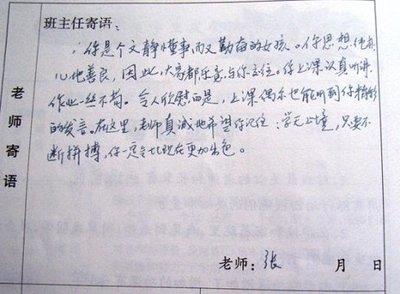 班主任寄语:
你是个文静懂事,而又勤奋的女孩。你思想健康
心地善良,因此,大家都乐意与你交往。你上课认真听讲
作业一丝不苟。令人欣慰的是,上课偶尔也能听到你精彩
的发言。在这里,老师真诚地希望你记住:学无止境,只要不
断拼搏,你一定会比现在更加出色。
老师寄语
老师:张 月 日